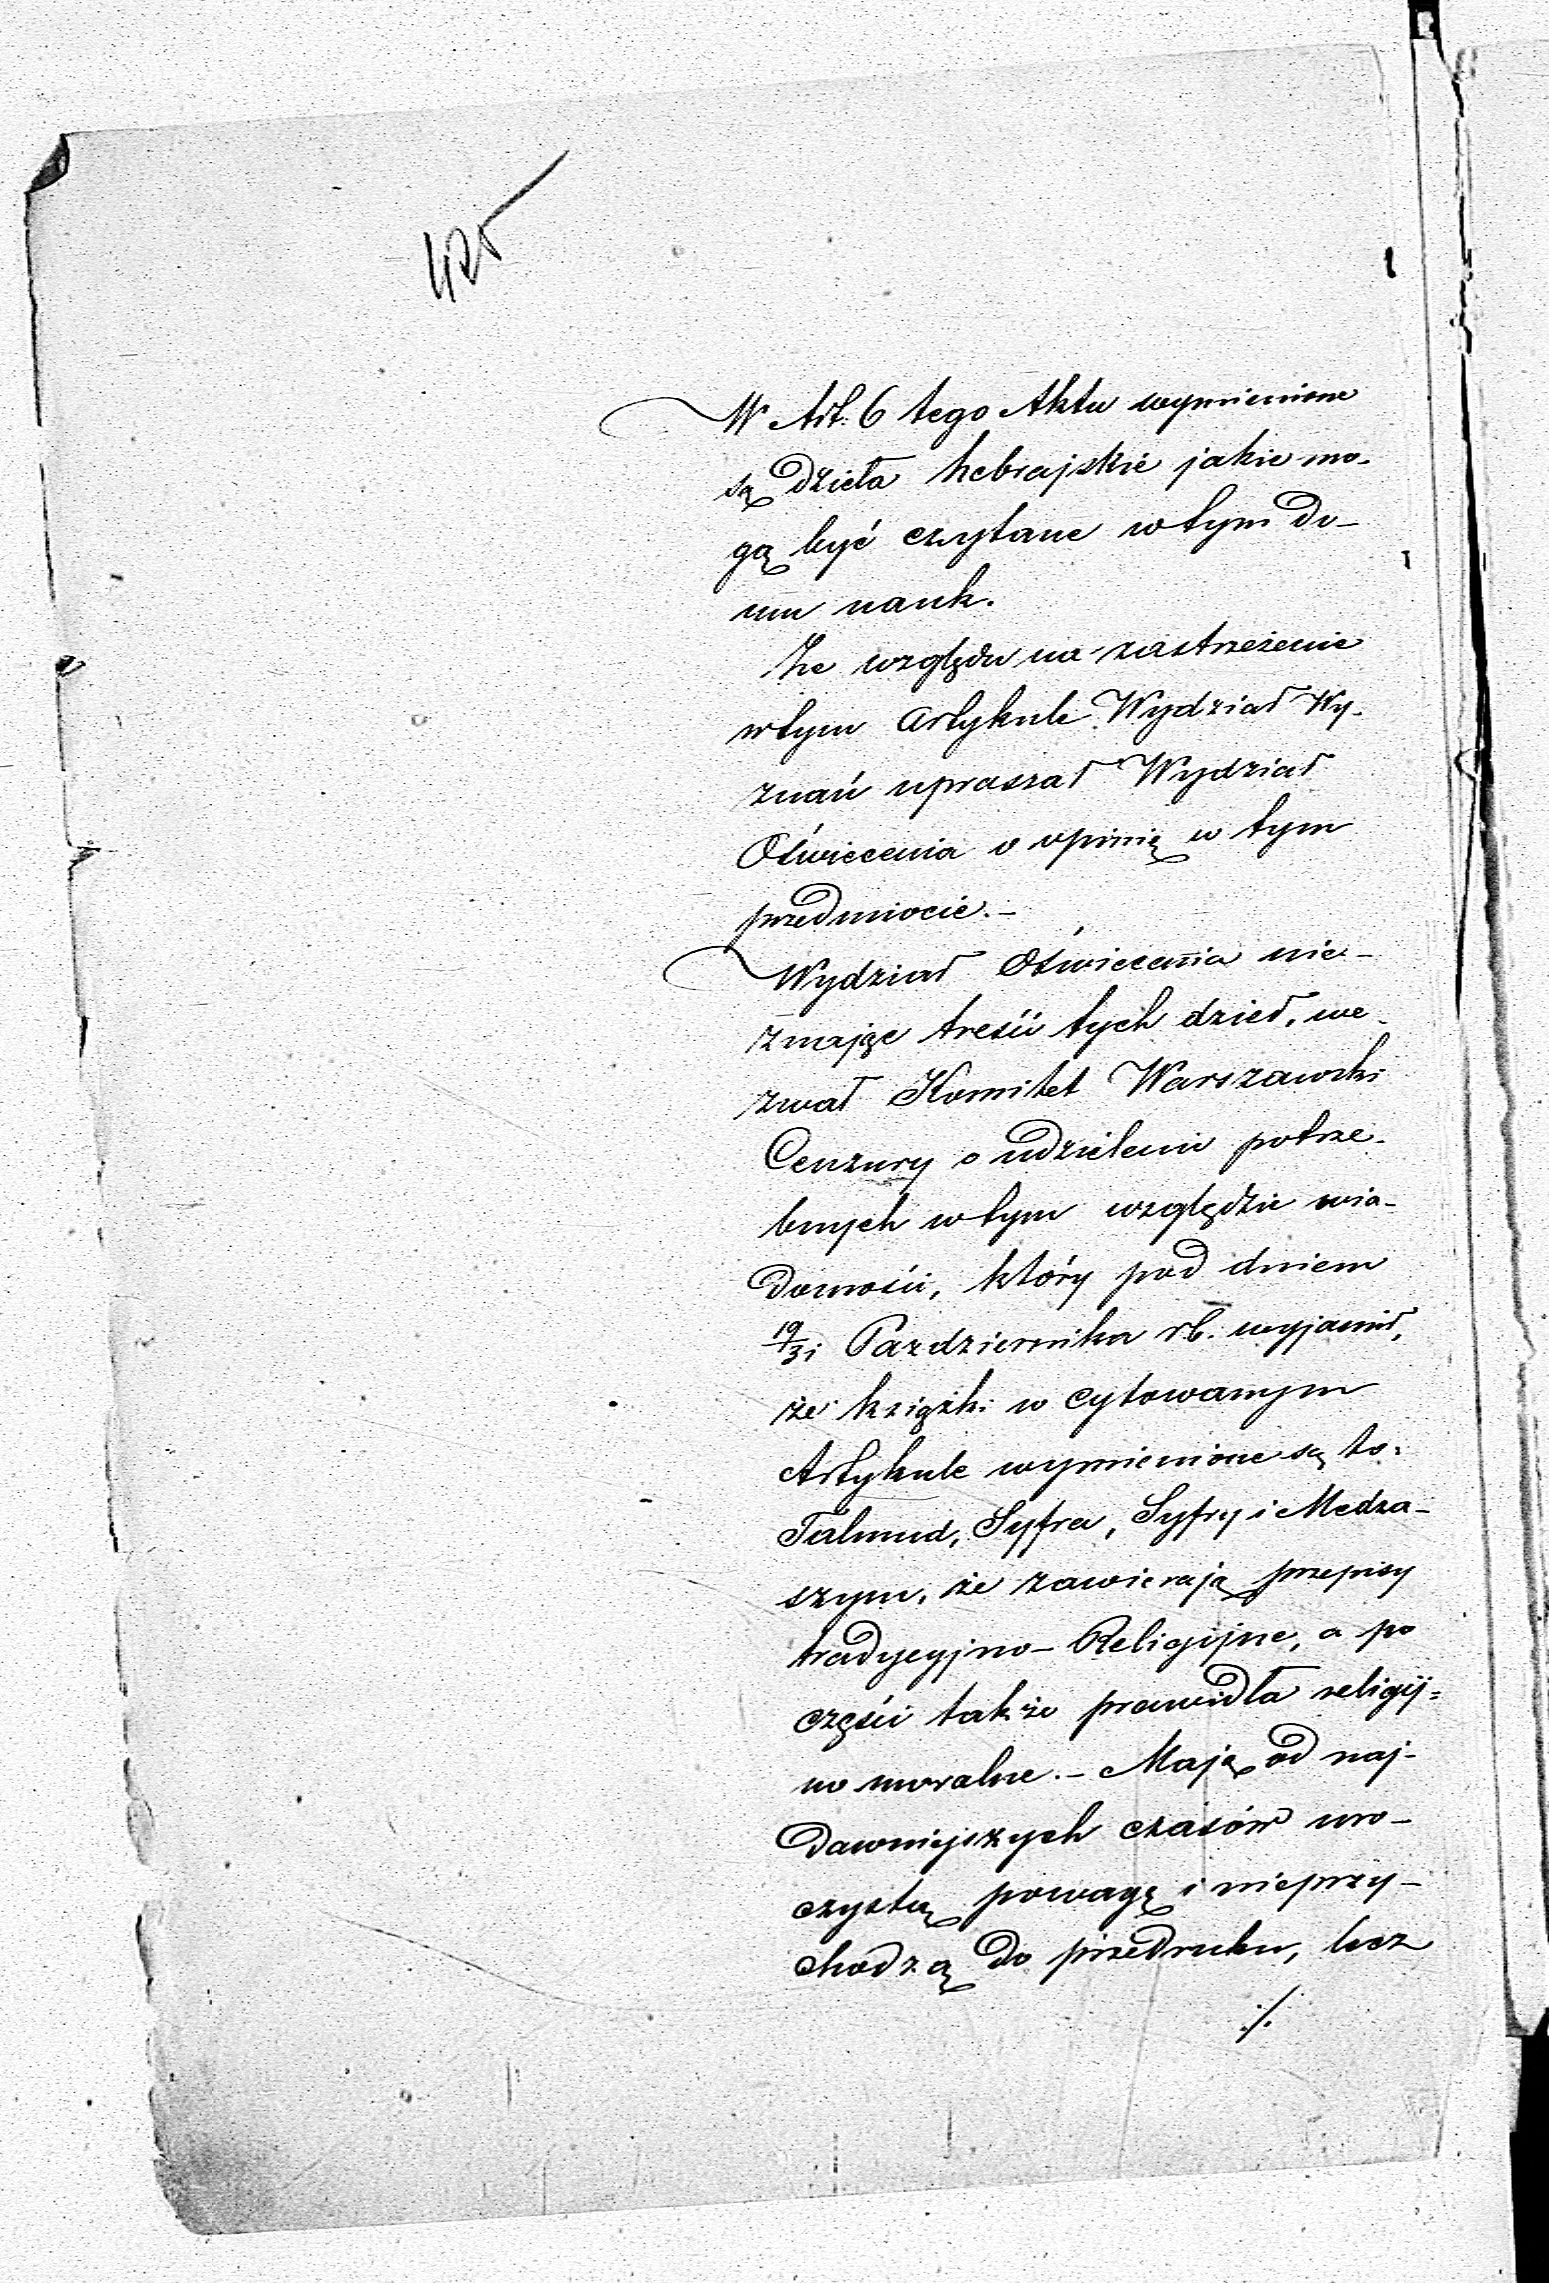 425
W Art. 6 tego Aktu wymienione
są dzieła hebrajskie jakie mo-
gą być czytane w tym do-
mu nauk.
Ze względu na zastrzeżenie
w tym Artykule Wydział Wy-
znań upraszał Wydział
Oświecenia o opinię w tym
przedmiocie.-
Wydział Oświecenia nie-
znając treści tych dzieł, we-
zwał Komitet Warszawski
Cenzury o udzielenie potrze-
bnych w tym względzie wia-
domości, który pod dniem
19/31 Pazdziernika rb. wyjasnił,
że książki w cytowanym
Artykule wymienione są to:
Talmud, Syfra, Syfry i Medra-
szym, że zawierają przepisy
tradycyjno-Religijne, a po
części także prawidła religij=
no moralne.- Mają od naj-
dawniejszych czasów uro-
czystą powagę i nieprzy-
chodzą do przedruku, lecz
./.